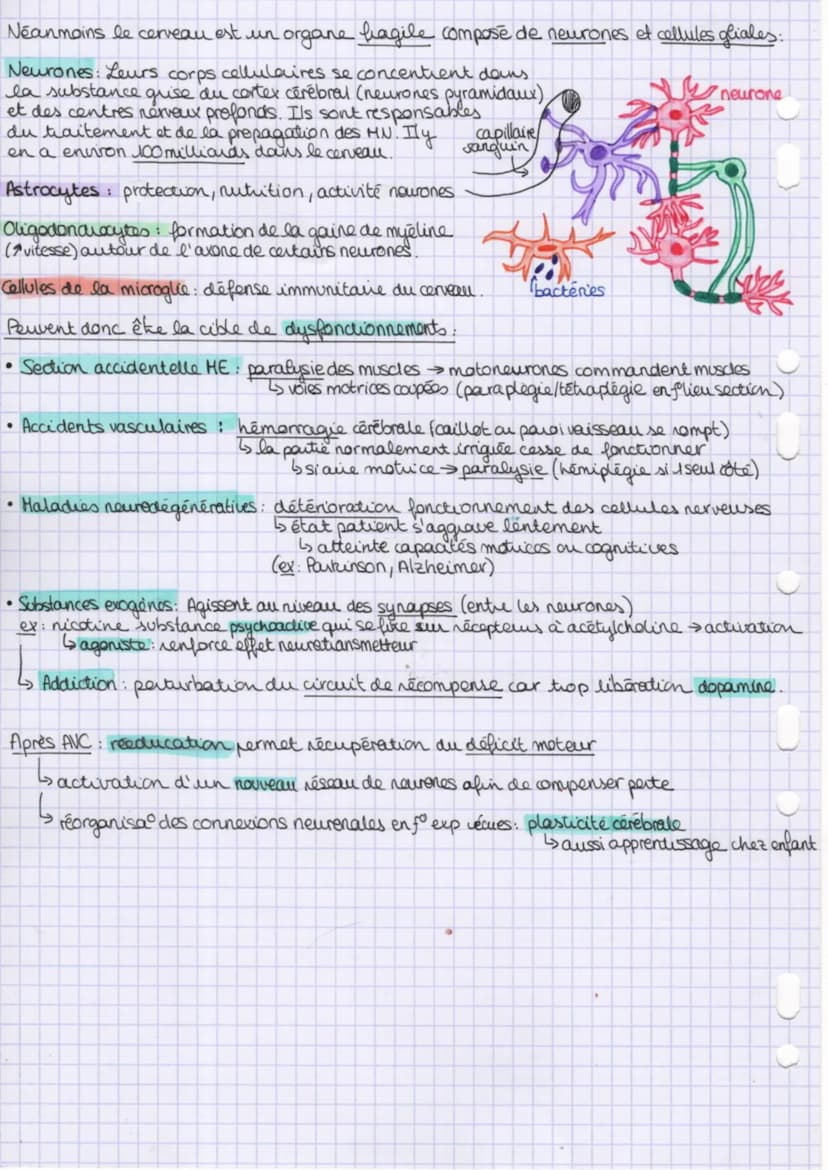 Néanmoins le cerveau est un organe fragile composé de neurones et cellules gliales :
Neurones : Leurs corps cellulaires se concentrent dans
la substance grise du cortex cérébral (neurones pyramidaux)
et des centres nerveux profonds. Ils sont responsables
du traitement et de la propagation des MN. Il y
en a environ 100 milliards dans le cerveau.
capillaire
sanguin
neurone
Astrocytes : protection, nutrition, activité neurones
Oligodondrocytes : formation de la gaine de myéline
(↗ vitesse) autour de l'axone de certains neurones.
Cellules de la microglie : défense immunitaire du cerveau.
bactéries
Peuvent donc être la cible de dysfonctionnements :
• Section accidentelle ME : paralysie des muscles → motoneurones commandent muscles
↳ voies motrices coupées (paraplégie/tétraplégie en f° lieu section)
• Accidents vasculaires : hémorragie cérébrale (caillot ou paroi vaisseau se rompt)
↳ la partie normalement irriguée cesse de fonctionner
↳ si aire motrice → paralysie (hémiplégie si 1 seul côté)
• Maladies neurodégénératives : détérioration fonctionnement des cellules nerveuses
↳ état patient s'aggrave lentement
↳ atteinte capacités motrices ou cognitives
(ex : Parkinson, Alzheimer)
• Substances exogènes : Agissent au niveau des synapses (entre les neurones)
ex : nicotine substance psychoactive qui se fixe sur récepteurs à acétylcholine → activation
↳ agoniste : renforce effet neurotransmetteur
↳ Addiction : perturbation du circuit de récompense car trop libération dopamine.
Après AVC : rééducation permet récupération du déficit moteur
↳ activation d'un nouveau réseau de neurones afin de compenser perte
↳ réorganisa° des connexions neuronales en f° exp vécues : plasticité cérébrale
↳ aussi apprentissage chez enfant